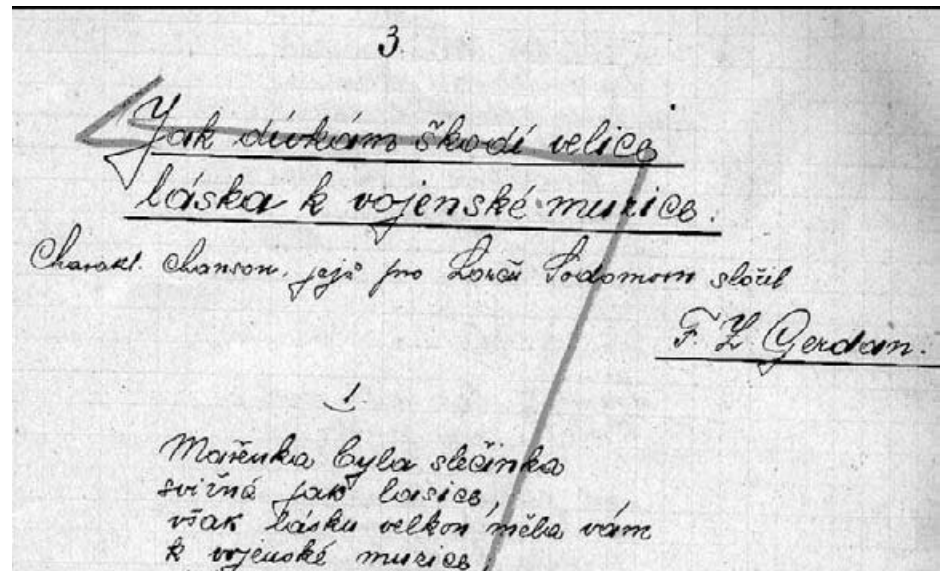 3.
Jak dívkám škodí velice
láska k vojenské muzice.
Charakt. chanson, jejž pro Lorču Sodomovu složil
F. Z. Gerdan.
1.
Mařenka byla slečinka
svižná jak lasice,
však lásku velkou měla vám
k vojenské muzice